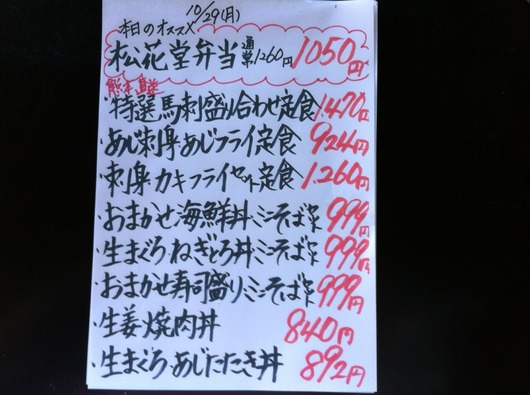 10/29(月)
本日のオススメ
松花堂弁当 通常1260円 1050円
熊本直送
・特選馬刺盛り合わせ定食 1,470円
・あじ刺身・あじフライ定食 924円
・刺身・カキフライセット定食 1,260円
・おまかせ海鮮丼・ミニそば付 999円
・生まぐろねぎとろ丼・ミニそば付 999円
・おまかせ寿司盛り・ミニそば付 999円
・生姜焼肉丼 840円
・生まぐろ・あじたたき丼 892円